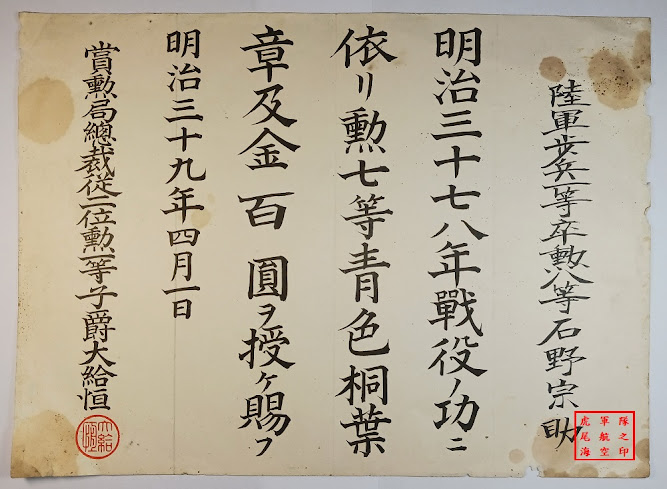 陸軍歩兵一等卒勲八等石野宗助
明治三十七八年戰役ノ功ニ
依リ勲七等青色桐葉
章及金百圓ヲ授ケ賜フ
明治三十九年四月一日
賞勲局總裁從二位勲一等子爵大給恒
大給恒
隊之印
軍航空
虎尾海